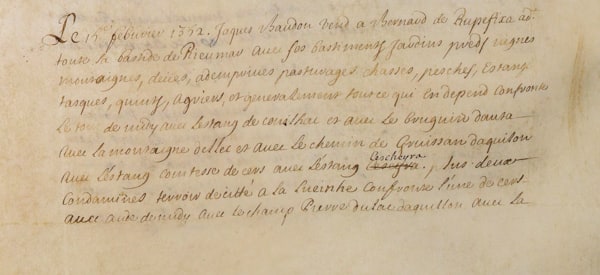 Le 15me febvrier 1352. Jaques Baudon vend a Bernard de Rupefixa
toute la bastide de Rieumar avec ses bastimens Jardins preds vignes
montaignes, devées, ademprives pasturages chasses, pesches, Estang
tasques, quints, agriers, et generallement tout ce qui En depend Confronte
le tout de midy avec lestang de et avec Le Bruguiere dausa
avec la montaigne dillec et avec Le Chemin de Gruissan daquilon
avec Lestang Comtesse de cers avec Lestang Cescheyra. plus deux
Condamines terroir de cette à la Lueinhe Confronte l'une de cers
avec aude de midy avec le champ Pierre dulac daquillon avec La